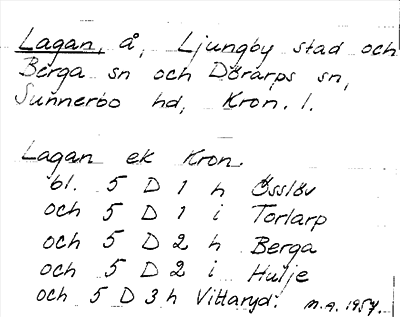 Lagan, å, Ljungby stad och
Berga sn och Dörarps sn,
Sunnerbo hd, Kron. l.
Lagan ek Kron.
bl. 5 D 1 h Össlöv
och 5 D 1 i Torlarp
och 5 D 2 h Berga
och 5 D 2 i Hulje
och 5 D 3 h Vittaryd. M.A. 1957.